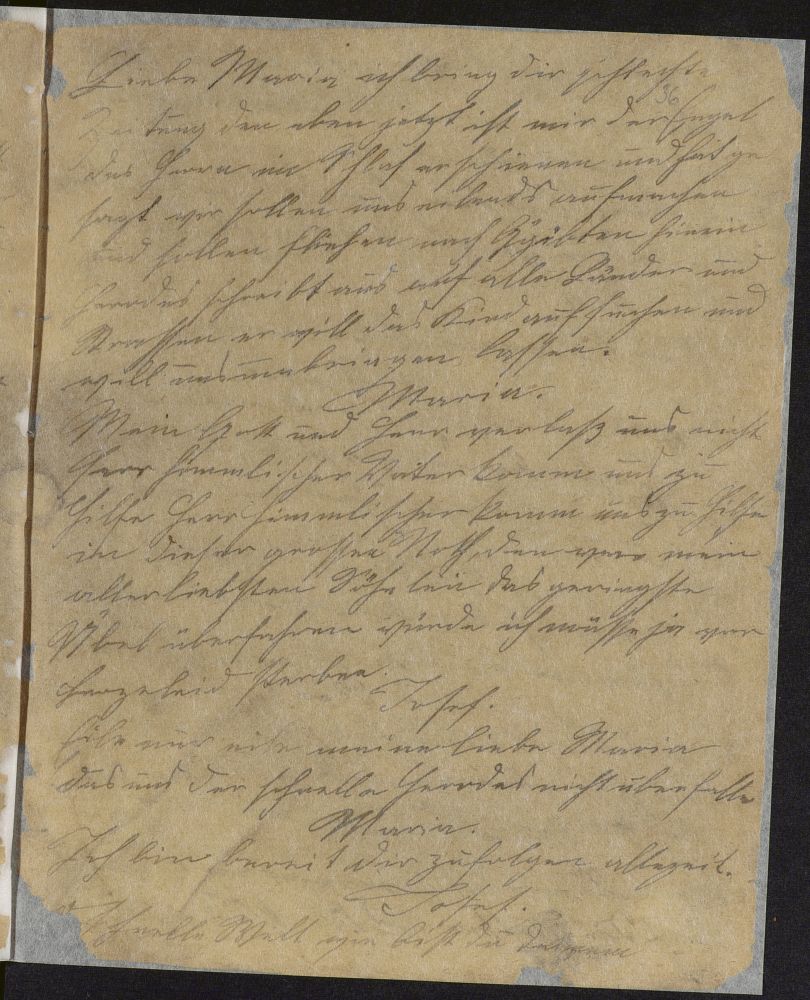 Liebe Maria ich bring dir schlechte
Zeitung den eben jetzt ist mir der Engel
36
des Herrn im Schlaf erschienen und hat ge
sagt wir sollen uns eilends aufmachen
und sollen fliehen nach Egibten hinein
Herodes schreibt aus auf alle Länder und
Strassen er will das Kind aufsuchen und
will uns umbringen lassen.
Maria.
Mein Gott und Herr verlaß uns nicht
Herr himmlischer Vater komm uns zu
Hilfe Herr himmlischer komm uns zu Hilfe
in dieser grossen Noth, den wen mein
allerliebsten Söhnlein das geringste
Übel überfahren würde ich müsse ja vor
Herzeleid sterben.
Josef.
Eile nur eile meine liebe Maria
das uns der schnelle Herodes nicht überfalle
Maria.
Ich bin bereit dir zufolgen allezeit.
Josef.
Schnelle Welt wie bist du